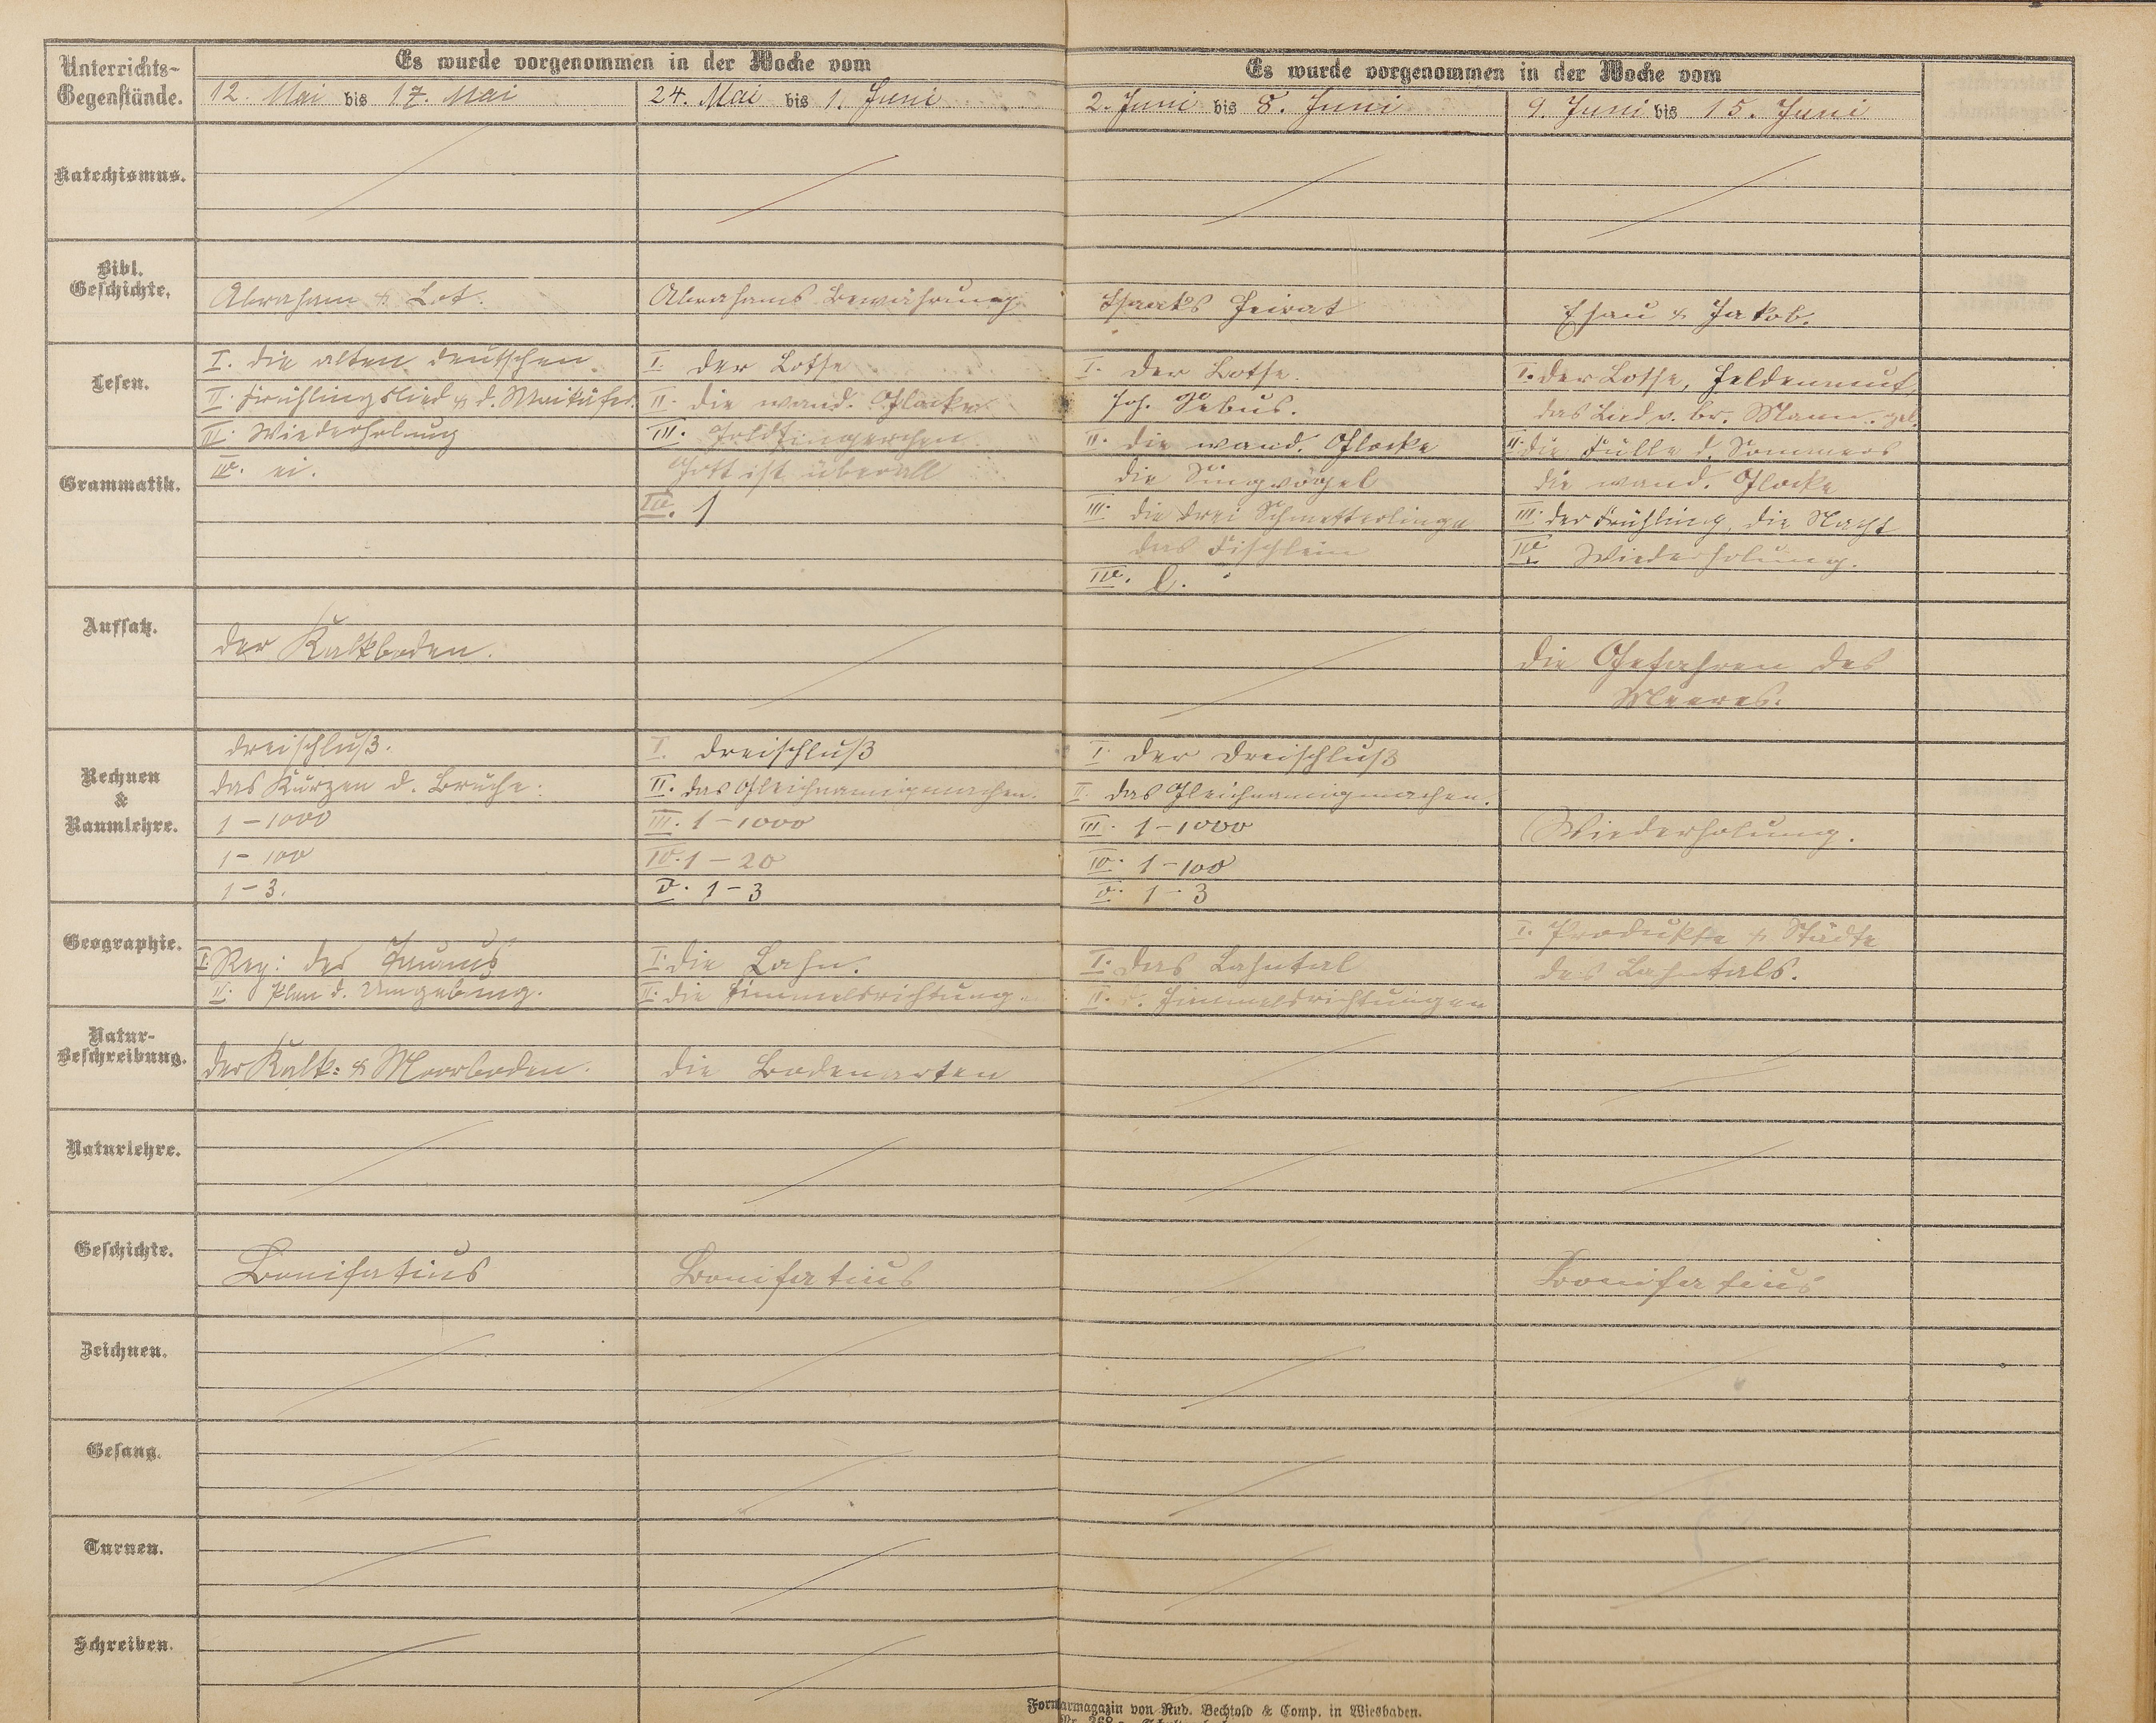 Unterrichts-
Gegenstände.
Es wurde vorgenommen in der Woche vom
12. Mai bis 17. Mai
24. Mai bis 1. Juni
Es wurde vorgenommen in der Woche vom
2. Juni bis 8. Juni
9. Juni bis 15. Juni
Katechismus.
Bibl.
Geschichte.
Abraham & Lot.
Abrahams Bewährung
Isaaks Heirat
Esau & Jakob.
Lesen.
I. die alten Deutschen.
II. Frühlingslied & d. Maikäfer.
III. Wiederholung
I. der Lotse
II. die wand. Glocke
III. Goldfingerchen
I. der Lotse.
Joh. Sebus.
II. die wand. Glocke
I. der Lotse, Heldenmut,
das Lied v. br. Mann. gel.
II. die Fülle d. Sommers
Grammatik.
IV. ei.
Gott ist überall
IV. 1
die Singvögel
III. die drei Schmetterlinge
das Fischlein
IV. l.
die wand. Glocke
III. der Frühling, die Nacht
IV. Wiederholung.
Aufsatz.
der Kalkboden.
die Gefahren des
Meeres.
Rechnen
&
Raumlehre.
Dreischluß.
das Kürzen d. Brüche.
1-1000
1-100
1-3.
I. Dreischluß
II. das Gleichnamigmachen.
III. 1-1000
IV. 1-20
V. 1-3
I. der Dreischluß
II. das Gleichnamigmachen.
III. 1-1000
IV. 1-100
V. 1-3
Wiederholung.
Geographie.
I. Reg: des Taunus
II. Plan d. Umgebung.
I. die Lahn.
II. die Himmelsrichtung.
I. das Lahntal
II. d. Himmelsrichtungen
I. Produkte & Städte
des Lahntals.
Natur-
Beschreibung.
der Kalk: & Moorboden.
die Bodenarten
Naturlehre.
Geschichte.
Bonifatius
Bonifatius
Bonifatius
Zeichnen.
Gesang.
Turnen.
Schreiben.
Formularmagazin von Rud. Bechtold & Comp. in Wiesbaden.